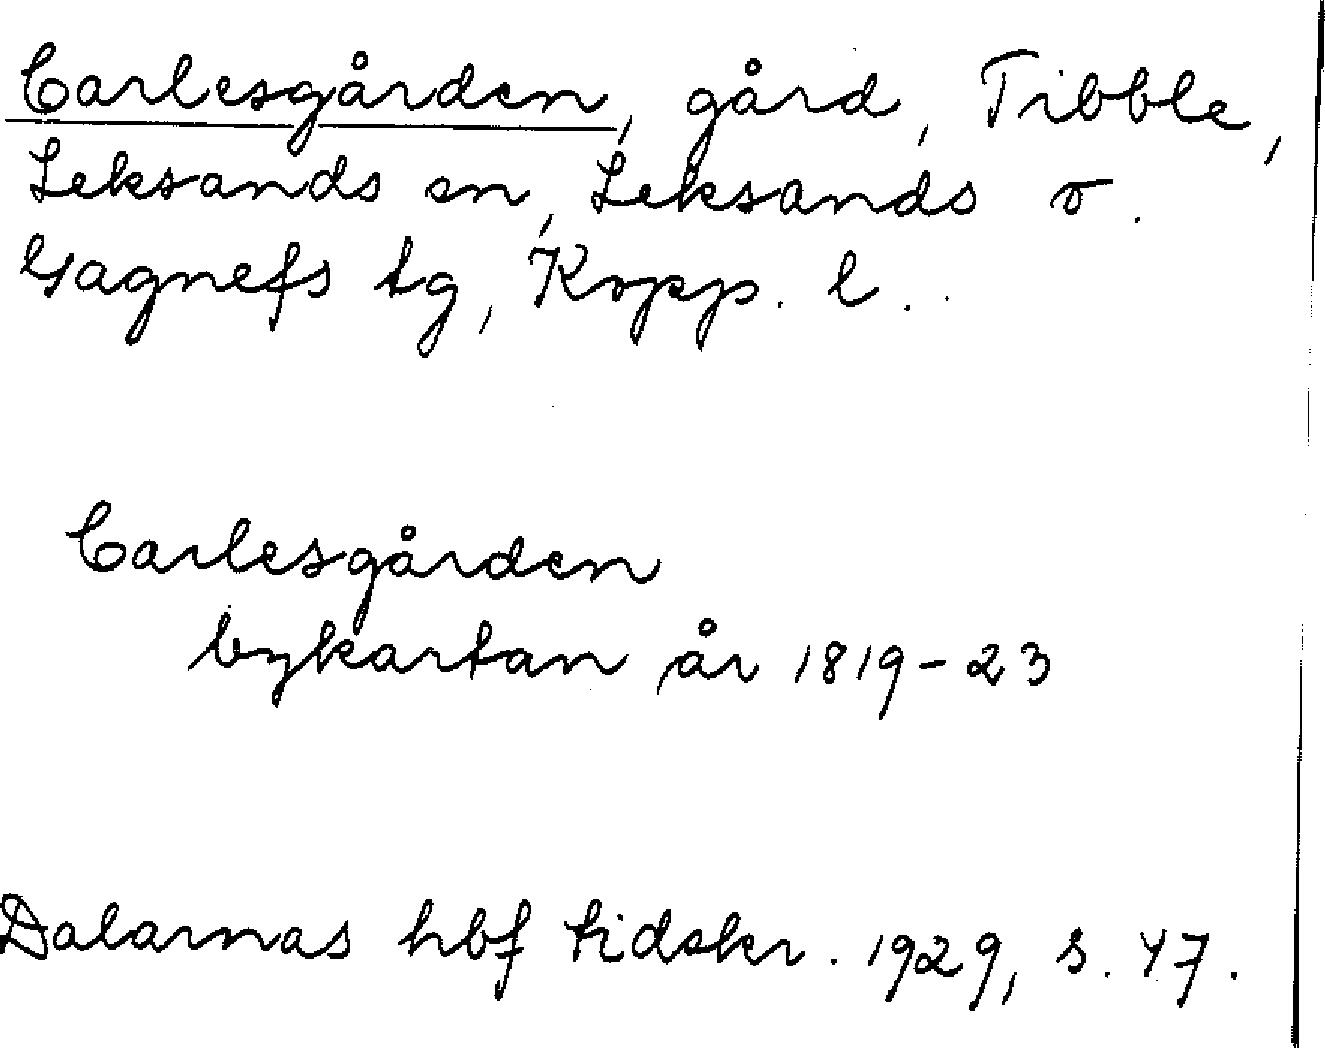 Carlesgården, gård, Tibble,
Leksands sn, Leksands o.
Gagnefs tg, Kopp. l.
Carlesgården
bykartan år 1819-23
Dalarnas hbf tidskr. 1929, s. 47.